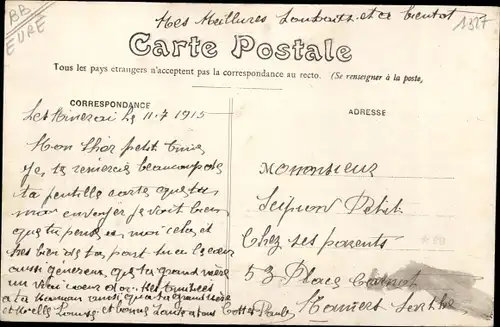 BB
EURE
Mes Meillures Souhaits et a bientot
1327
Carte Postale
Tous les pays etrangers n'acceptent pas la correspondance au recto. (Se renseigner à la poste,
CORRESPONDANCE
ADRESSE
Les Minerai Le 11-7 1915
Mon Cher petit
Je te remercie beaucoup de
ta gentille carte que tu
mon envoyer je voit bien
que tu pense a moi cela et
tres bien de ta part tu a le cœur
aussi genereux que ta grand mère
un vrai cœur d'or. Mes
a ta Maman aussi qua ta grand mère
et Melle Louise et bonne
Monsieur
Petit
Chez ses parents
53 Place Carnot
Mamers Sarthe